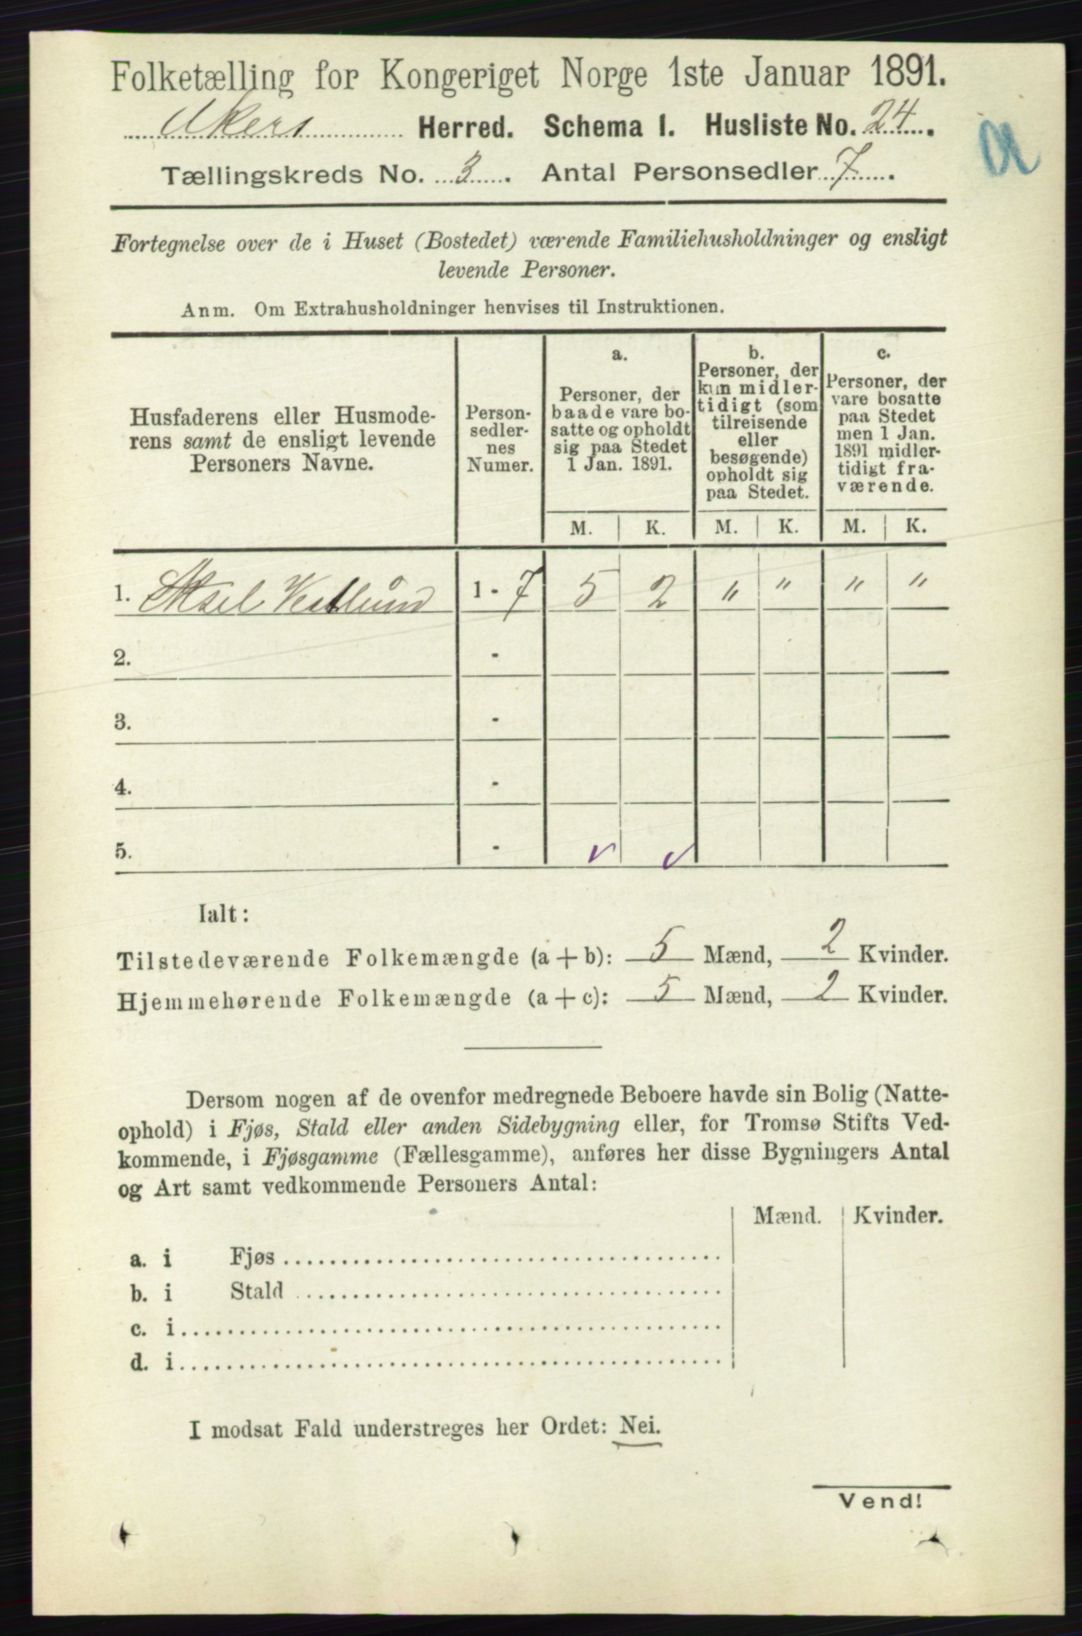 Folketælling for Kongeriget Norge 1ste Januar 1891.
Akers Herred. Schema I. Husliste No. 24.
Tællingskreds No. 3. Antal Personsedler 7.
Fortegnelse over de i Huset (Bostedet) værende Familiehusholdninger og ensligt
levende Personer.
Anm. Om Extrahusholdninger henvises til Instruktionen.
Husfaderens eller Husmode-
rens samt de ensligt levende
Personers Navne.
Person-
sedler-
nes
Numer.
a.
Personer, der
baade vare bo-
satte og opholdt
sig paa Stedet
1 Jan. 1891.
b.
Personer, der
kun midler-
tidigt (som
tilreisende
eller
besøgende)
opholdt sig
paa Stedet.
c.
Personer, der
vare bosatte
paa Stedet
men 1 Jan.
1891 midler-
tidigt fra-
værende.
M. K. M. K. M. K.
1. Aksel Vestlund 1 - 7 5 2 " " " "
2. -
3. -
4. -
5. - v v
Ialt:
Tilstedeværende Folkemængde (a + b): 5 Mænd, 2 Kvinder.
Hjemmehørende Folkemængde (a + c): 5 Mænd, 2 Kvinder.
Dersom nogen af de ovenfor medregnede Beboere havde sin Bolig (Natte-
ophold) i Fjøs, Stald eller anden Sidebygning eller, for Tromsø Stifts Ved-
kommende, i Fjøsgamme (Fællesgamme), anføres her disse Bygningers Antal
og Art samt vedkommende Personers Antal:
Mænd. Kvinder.
a. i Fjøs
b. i Stald
c. i
d. i
I modsat Fald understreges her Ordet: Nei.
Vend!